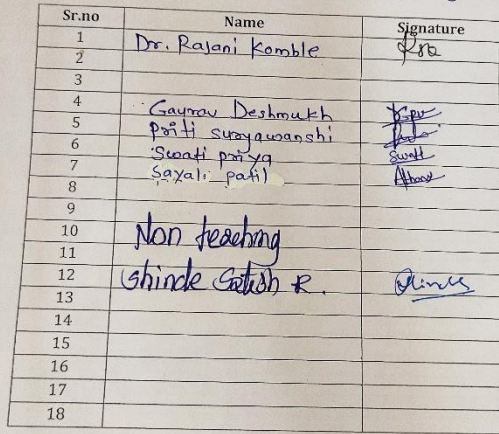 Sr.no Name Signature
1 Dr. Rajani Komble
2
3
4 Gaurav Deshmukh
5 Priti suryawanshi
6 Swati priya Swati
7 Sayali patil
8
9
10 Non teaching
11
12 Shinde Satish R.
13
14
15
16
17
18